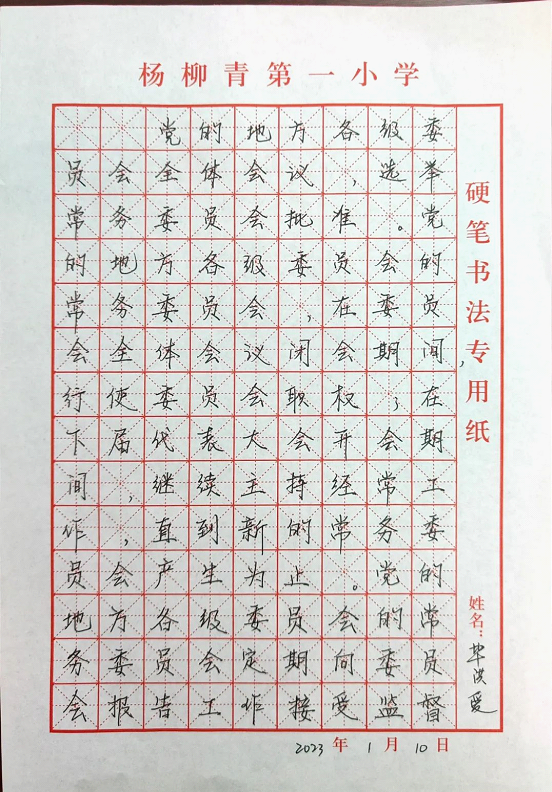 杨柳青第一小学
党的地方各级委
员会全体会议，选举
常务委员会批准。党
的地方各级委员会的
常务委员会，在委员
会全体会议闭会期间，
行使委员会职权；在
下届代表大会开会期
间，继续主持经常工
作，直到新的常务委
员会产生为止。党的
地方各级委员会的常
务委员会定期向委员
会报告工作接受监督
硬笔书法专用纸
姓名：毕洪爱
2023年1月10日